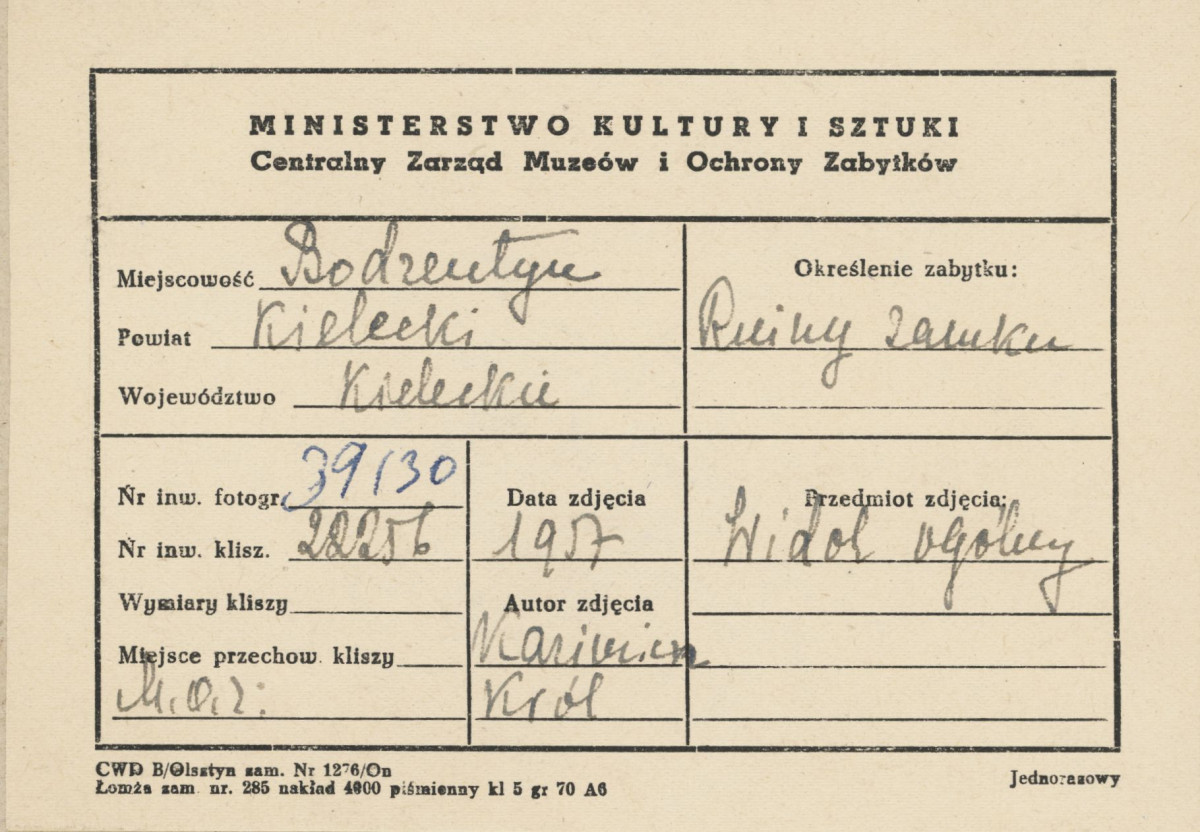 MINISTERSTWO KULTURY I SZTUKI
Centralny Zarząd Muzeów i Ochrony Zabytków
Miejscowość Bodzentyn
Powiat Kielecki
Województwo Kieleckie
Określenie zabytku:
Ruiny zamku
Nr inw. fotogr. 39130
Nr inw. klisz. 22256
Wymiary kliszy
Miejsce przechow. kliszy
M.O.Z.
Data zdjęcia
1957
Autor zdjęcia
Kazimierz
Król
Przedmiot zdjęcia:
Widok ogólny
CWD B/Olsztyn zam. Nr 1276/On
Łomża zam. nr. 285 nakład 4000 piśmienny kl 5 gr 70 A6
Jednorazowy